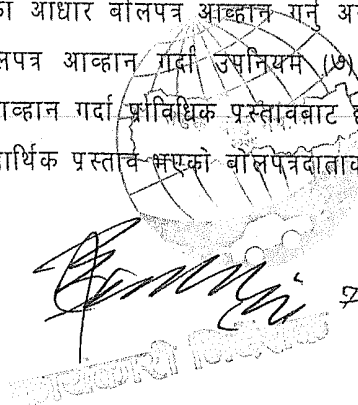 का आधार बोलपत्र आव्हान गर्नु
लपत्र आव्हान गर्दा उपनियम (७)
आव्हान गर्दा प्राविधिक प्रस्तावबाट
आर्थिक प्रस्ताव भएको बोलपत्रदाता
कार्यकारी निर्देशक